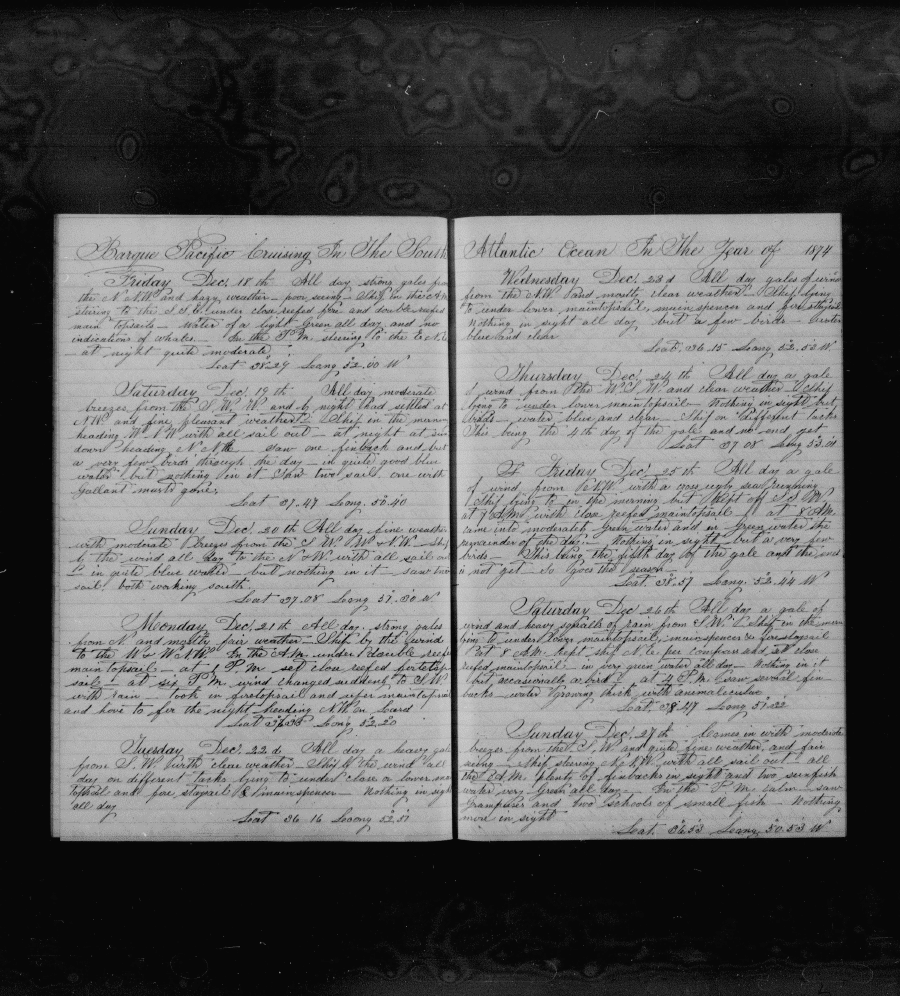 Barque Pacific Cruising In The South
Friday Dec, 18th All day strong gales from
the N.N.W. and hazy weather - poor seeing - Ship in the A.M.
stering to the S.S.E. under close reefed fore and double reefed
main topsails - water of a light green all day and no
indications of whales - In the P.M. stering to the E.N.E.
at night quite moderate
Lat 38.29 Long, 52.00 W
Saturday Dec, 19th All day moderate
breezes from the S.W. and by night had settled at
N.W. and fine pleasant weather - Ship in the morning
heading W.N.W. with all sail out - at night at sun
down heading N.N.E. saw one finback and but
a very few birds through the day - in quite good blue
water but nothing in it. Saw two sail, one with
Gallant masts gone,
Lat 37.47 Long. 50.40
Sunday Dec, 20th All day fine weather
with moderate breeze from the S.W. W. & N.W. Ship
by the wind all day to the N & W with all sail out
in quite blue water - but nothing in it saw two
sail, both working south
Lat 37.08 Long 51.30 W
Monday Dec, 21th All day strong gales
from N. and mostly fair weather - Ship by the wind
to the W & W.N.W. In the A.M. under double reefed
main topsail - at 1 P.M. set close reefed foretop
sail - at six P.M. wind changed suddenly to S.W.
with rain - took in foretopsail and upper maintopsail
and hove to for the night heading N.W. on board
Lat 36.35 Long 52.20
Tuesday Dec, 22d All day a heavy gale
from S.W. with clear weather - Ship by the wind all
day on different tacks lying to under close or lower main
topsail and fore staysail & main spencer - Nothing in sight
all day
Lat 36.16 Long 52.51
Atlantic Ocean In The Year of 1874
Wednesday Dec, 23d All day gales of wind
from the N.W. and mostly clear weather - Ship lying
to under lower maintopsail, main spencer and fore staysail
Nothing in sight all day, but a few birds - water
blue and clear
Lat, 36.15 Long 52.52 W
Thursday Dec, 24th All day a gale
of wind from the W.S.W. and clear weather - Ship
lying to under lower maintopsail - Nothing in sight but
birds - water blue and clear - Ship on different tacks
This being the 4th day of the gale and no end yet
Lat 37.08 Long 53.01
Friday Dec, 25th All day a gale
of wind from W.S.W. with a cross ugly sea running
Ship lying to in the morning but kept off S.S.W
at 7 A.M. with close reefed maintopsail at 8 A.M.
came into moderately green water and in green water the
remainder of the day - Nothing in sight but a very few
birds - This being the fifth day of the gale and the end
is not yet So Goes the season -
Lat 38.57 Long, 52.44 W
Saturday Dec 26th All day a gale of
wind and heavy squalls of rain from S.W. Ship in the morn
lying to under lower maintopsail, mainspencer & forestaysail
But 1 A.M. kept ship N.E. per compass and set close
reefed maintopsail - in very green water all day - Nothing in it
but occasionally a bird - at 4 P.M. saw several fin
backs - water growing thick with animalecular
Lat, 38.47 Long 51.22
Sunday Dec, 27th - Comes in with moderate
breezes from the S.W. and quite fine weather, and fair
seeing - Ship stering N.N.W. with all sail out - all
the A.M. plenty of finbacks in sight and two sunfish
water very Green all day - In the P.M. calm - saw
Grampuses and two schools of small fish - Nothing
more in sight
Lat. 36.53 Long, 50.53 W